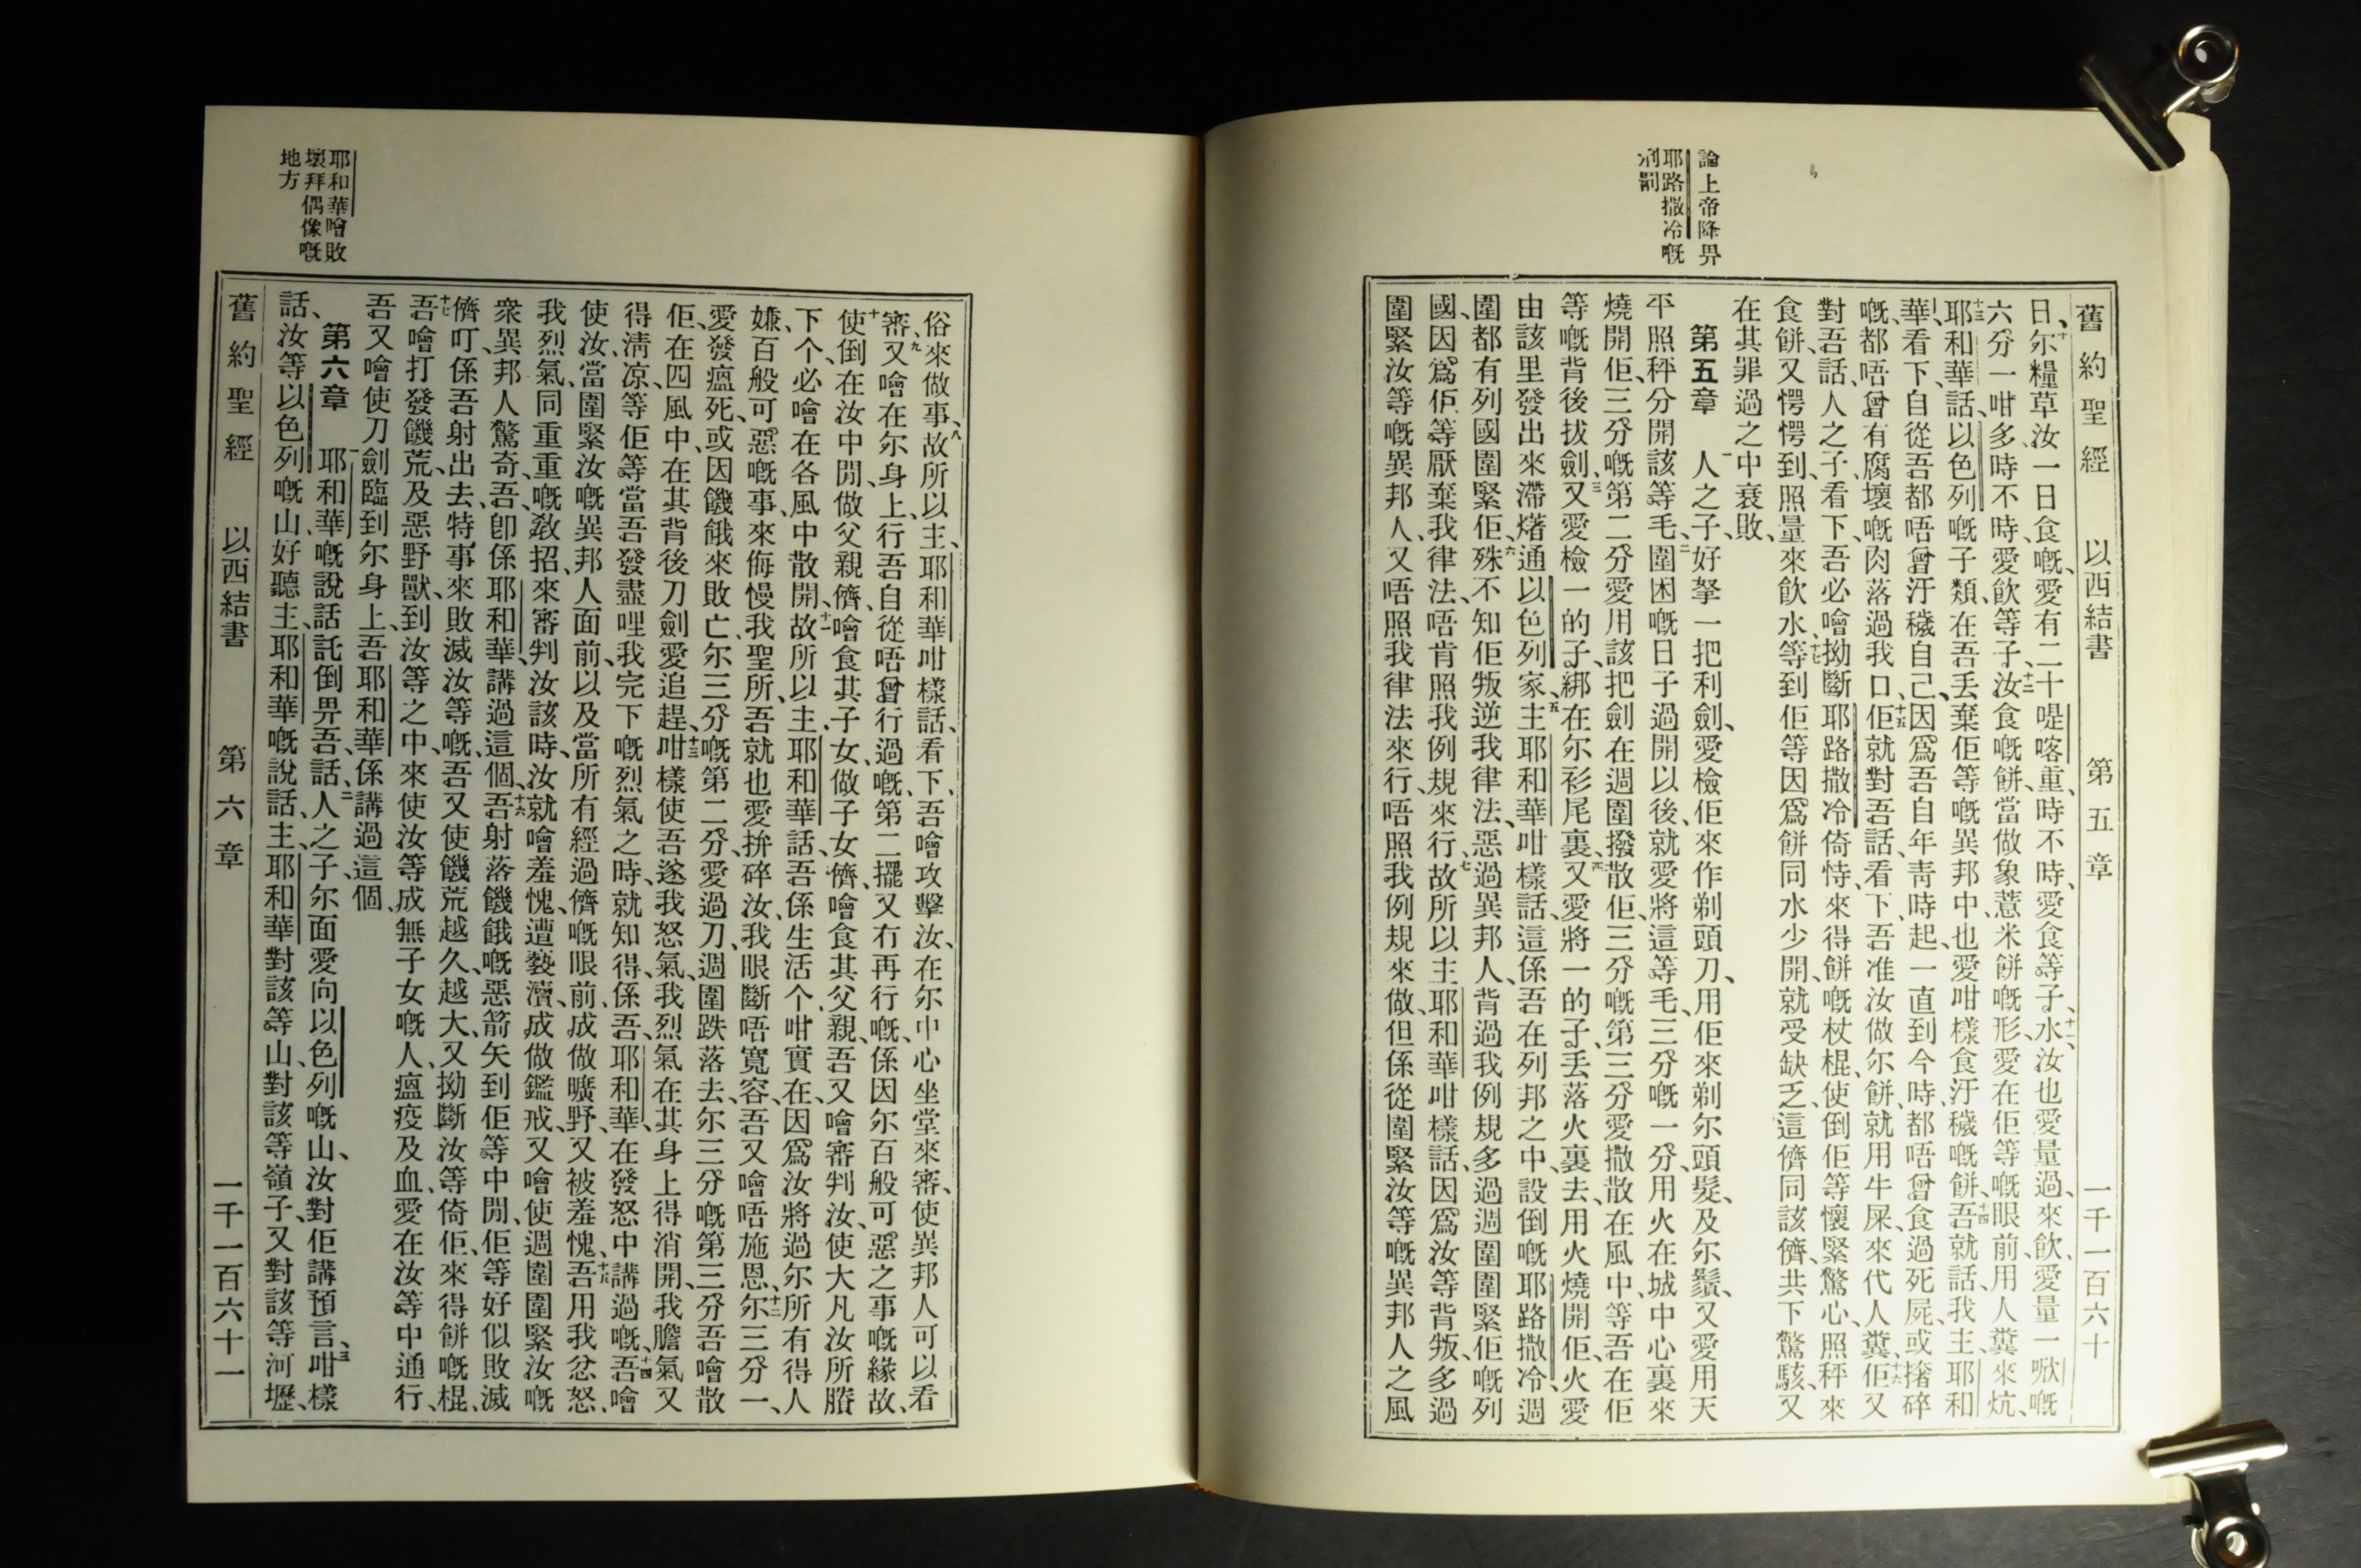 論上帝降畀
耶路撒冷嘅
刑罰
舊約聖經 以西結書 第五章 一千一百六十
日、十尔糧草汝一日食嘅、愛有二十喼喀重、時不時、愛食等子、十一水汝也愛量過、來飲、愛量一㰸嘅
六分一咁多、時不時、愛飲等子、十二汝食嘅餅、當做象薏米餅嘅形、愛在佢等嘅眼前、用人糞來炕、
十三耶和華話、以色列嘅子類、在吾丢棄佢等嘅異邦中、也愛咁樣食汙穢嘅餅、十四吾就話、我主、耶和
華、看下、自從吾都唔曾汙穢自己、因爲吾自年青時起、一直到今時、都唔曾食過死屍、或撦碎
嘅、都唔曾有腐壞嘅肉落過我口、十五佢就對吾話、看下、吾准汝做尔餅、就用牛屎、來代人糞、十六佢又
對吾話、人之子、看下、吾必噲拗斷耶路撒冷倚恃、來得餅嘅杖棍、使倒佢等懷緊驚心、照秤來
食餅、又愕愕到、照量來飲水、十七等到佢等因爲餅同水少開、就受缺乏、這儕同該儕、共下驚駭、又
在其罪過之中衰敗、
第五章 一人之子、好拏一把利劍、愛檢佢來作剃頭刀、用佢來剃尔頭髮、及尔鬚、又愛用天
平照秤分開該等毛、二圍困嘅日子過開以後、就愛將這等毛、三分嘅一分、用火在城中心裏來
燒開佢、三分嘅第二分愛用該把劍在週圍撥散佢、三分嘅第三分愛撒散在風中、等吾在佢
等嘅背後拔劍、三又愛檢一的子、綁在尔衫尾裏、四又愛將一的子、丢落火裏去、用火燒開佢、火愛
由該里發出來滯熸通以色列家、五主耶和華咁樣話、這係吾在列邦之中、設倒嘅耶路撒冷、週
圍都有列國圍緊佢、六殊不知佢叛逆我律法、惡過異邦人、背過我例規、多過週圍圍緊佢嘅列
國、因爲佢等厭棄我律法、唔肯照我例規來行、七故所以主耶和華咁樣話、因爲汝等背叛、多過
圍緊汝等嘅異邦人、又唔照我律法來行、唔照我例規來做、但係從圍緊汝等嘅異邦人之風
俗來做事、八故所以主、耶和華咁樣話、看下、吾噲攻擊汝、在尔中心坐堂來審、使異邦人可以看
審、九又噲在尔身上、行吾自從唔曾行過嘅、第二擺又冇再行嘅、係因尔百般可惡之事嘅緣故、
十使倒在汝中間、做父親儕、噲食其子女、做子女儕、噲食其父親、吾又噲審判汝、使大凡汝所賸
下个、必噲在各風中散開、十一故所以主、耶和華話、吾係生活个、咁實在、因爲汝將過尔所有得人
嫌、百般可惡嘅事、來侮慢我聖所、吾就也愛拚碎汝、我眼斷唔寬容、吾又噲唔施恩、十二尔三分一、
愛發瘟死、或因饑餓來敗亡、尔三分嘅第二分、愛過刀、週圍跌落去、尔三分嘅第三分、吾噲散
佢、在四風中、在其背後刀劍愛追趕、十三咁樣使吾遂我怒氣、我烈氣在其身上得消開、我膽氣又
得清凉、等佢等當吾發盡哩我完下嘅烈氣之時、就知得、係吾耶和華、在發怒中講過嘅、十四吾噲
使汝、當圍緊汝嘅異邦人面前、以及當所有經過儕嘅眼前、成做曠野、又被羞愧、十五吾用我忿怒、
我烈氣、同重重嘅敎招、來審判汝該時、汝就噲羞愧、遭褻瀆、成做鑑戒、又噲使週圍圍緊汝嘅
衆異邦人驚奇、吾卽係耶和華、講過這個、十六吾射落饑餓嘅惡箭矢到佢等中間、佢等好似敗滅
儕叮、係吾射出去、特事來敗滅汝等嘅、吾又使饑荒越久越大、又拗斷汝等倚佢、來得餅嘅棍、
十七吾噲打發饑荒、及惡野獸、到汝等之中、來使汝等成無子女嘅人、瘟疫及血、愛在汝等中通行、
吾又噲使刀劍臨到尔身上、吾耶和華係講過這個、
第六章 一耶和華嘅說話託倒畀吾、話、二人之子、尔面愛向以色列嘅山、汝對佢講預言、三咁樣
話、汝等以色列嘅山、好聽主、耶和華嘅說話、主、耶和華對該等山、對該等嶺子、又對該等河壢、
耶和華噲敗
壞拜偶像嘅
地方
舊約聖經 以西結書 第六章 一千一百六十一